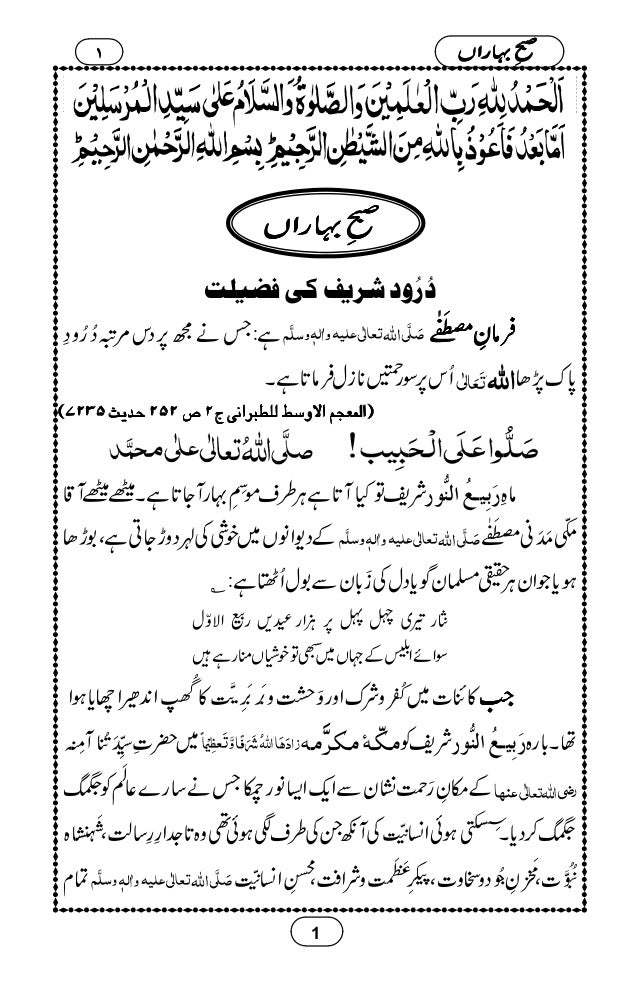 صبحِ بہاراں
۱
اَلْحَمْدُ لِلّٰهِ رَبِّ الْعٰلَمِیْنَ وَالصَّلٰوةُ وَالسَّلَامُ عَلٰی سَیِّدِ الْمُرْسَلِیْنَ
اَمَّا بَعْدُ فَاَعُوْذُ بِاللّٰهِ مِنَ الشَّیْطٰنِ الرَّجِیْمِ ؕ بِسْمِ اللّٰهِ الرَّحْمٰنِ الرَّحِیْمِ ؕ
صبحِ بہاراں
دُرُود شریف کی فضیلت
فرمانِ مصطَفٰے صَلَّی اللہ تعالٰی علیہ واٰلہٖ وسلَّم ہے: جس نے مجھ پر دس مرتبہ دُرُودِ
پاک پڑھا اللہ تَعَالٰی اُس پر سو رحمتیں نازل فرماتا ہے۔
(المعجم الاوسط للطبرانی ج۲ ص ۲۵۲ حدیث ۷۲۳۵)
صَلُّوا عَلَی الْحَبِیب! صلَّی اللہُ تعالٰی علٰی محمَّد
ماہِ رَبِیعُ النُّور شریف تو کیا آتا ہے ہر طرف موسمِ بہار آ جاتا ہے۔ میٹھے میٹھے آقا
مکّی مَدَنی مصطَفٰے صَلَّی اللہ تعالٰی علیہ واٰلہٖ وسلَّم کے دیوانوں میں خوشی کی لہر دوڑ جاتی ہے، بوڑھا
ہو یا جوان ہر حقیقی مسلمان گویا دل کی زَبان سے بول اُٹھتا ہے: ؎
نثار تیری چہل پہل پر ہزار عیدیں ربیع الاوّل
سوائے ابلیس کے جہاں میں سبھی تو خوشیاں منا رہے ہیں
جب کائنات میں کُفر و شرک اور وَحشت و بَربَرِیَّت کا گُھپ اندھیرا چھایا ہوا
تھا۔ بارہ رَبِیعُ النُّور شریف کو مکّۂ مکرَّمہ زادھَا اللہُ شَرَفًا وَّتَعظِیْمًا میں حضرتِ سیِّدَتُنا آمِنہ
رضی اللہ تعالٰی عنہا کے مکانِ رَحمت نشان سے ایک ایسا نور چمکا جس نے سارے عالَم کو جگمگ
جگمگ کر دیا۔ سسکتی ہوئی انسانیّت کی آنکھ جن کی طرف لگی ہوئی تھی وہ تاجدارِ رِسالت، شَہَنشاہِ
نُبُوَّت، مَخْزنِ جُود و سخاوت، پیکرِ عَظَمت و شرافت، محسنِ انسانیّت صَلَّی اللہ تعالٰی علیہ واٰلہٖ وسلَّم تمام
1